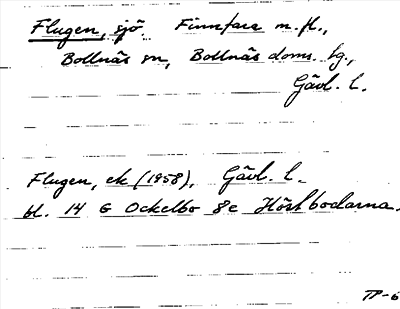 Flugen, sjö. Finnfara m.fl.,
Bollnäs sn, Bollnäs doms. tg.,
Gävl. l.
Flugen, ek (1958), Gävl. l.
bl. 14 G Ockelbo 8e Höstbodarna.
TP-6